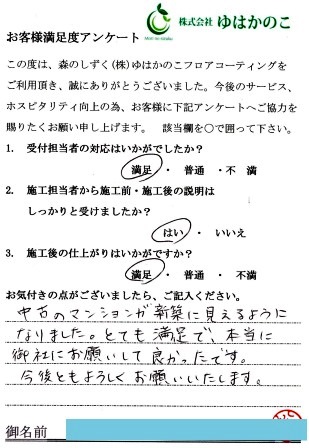 株式会社 ゆはかのこ
お客様満足度アンケート
この度は、森のしずく(株)ゆはかのこフロアコーティングを
ご利用頂き、誠にありがとうございました。今後のサービス、
ホスピタリティ向上の為、お客様に下記アンケートへご協力を
賜りたくお願い申し上げます。 該当欄を○で囲って下さい。
1. 受付担当者の対応はいかがでしたか?
満足 ・ 普通 ・ 不 満
2. 施工担当者から施工前・施工後の説明は
しっかりと受けましたか?
はい ・ いいえ
3. 施工後の仕上がりはいかがですか?
満足 ・ 普通 ・ 不満
お気付きの点がございましたら、ご記入ください。
中古のマンションが新築に見えるように
なりました。とても満足で、本当に
御社にお願いして良かったです。
今後ともようしくお願いいたします。
御名前